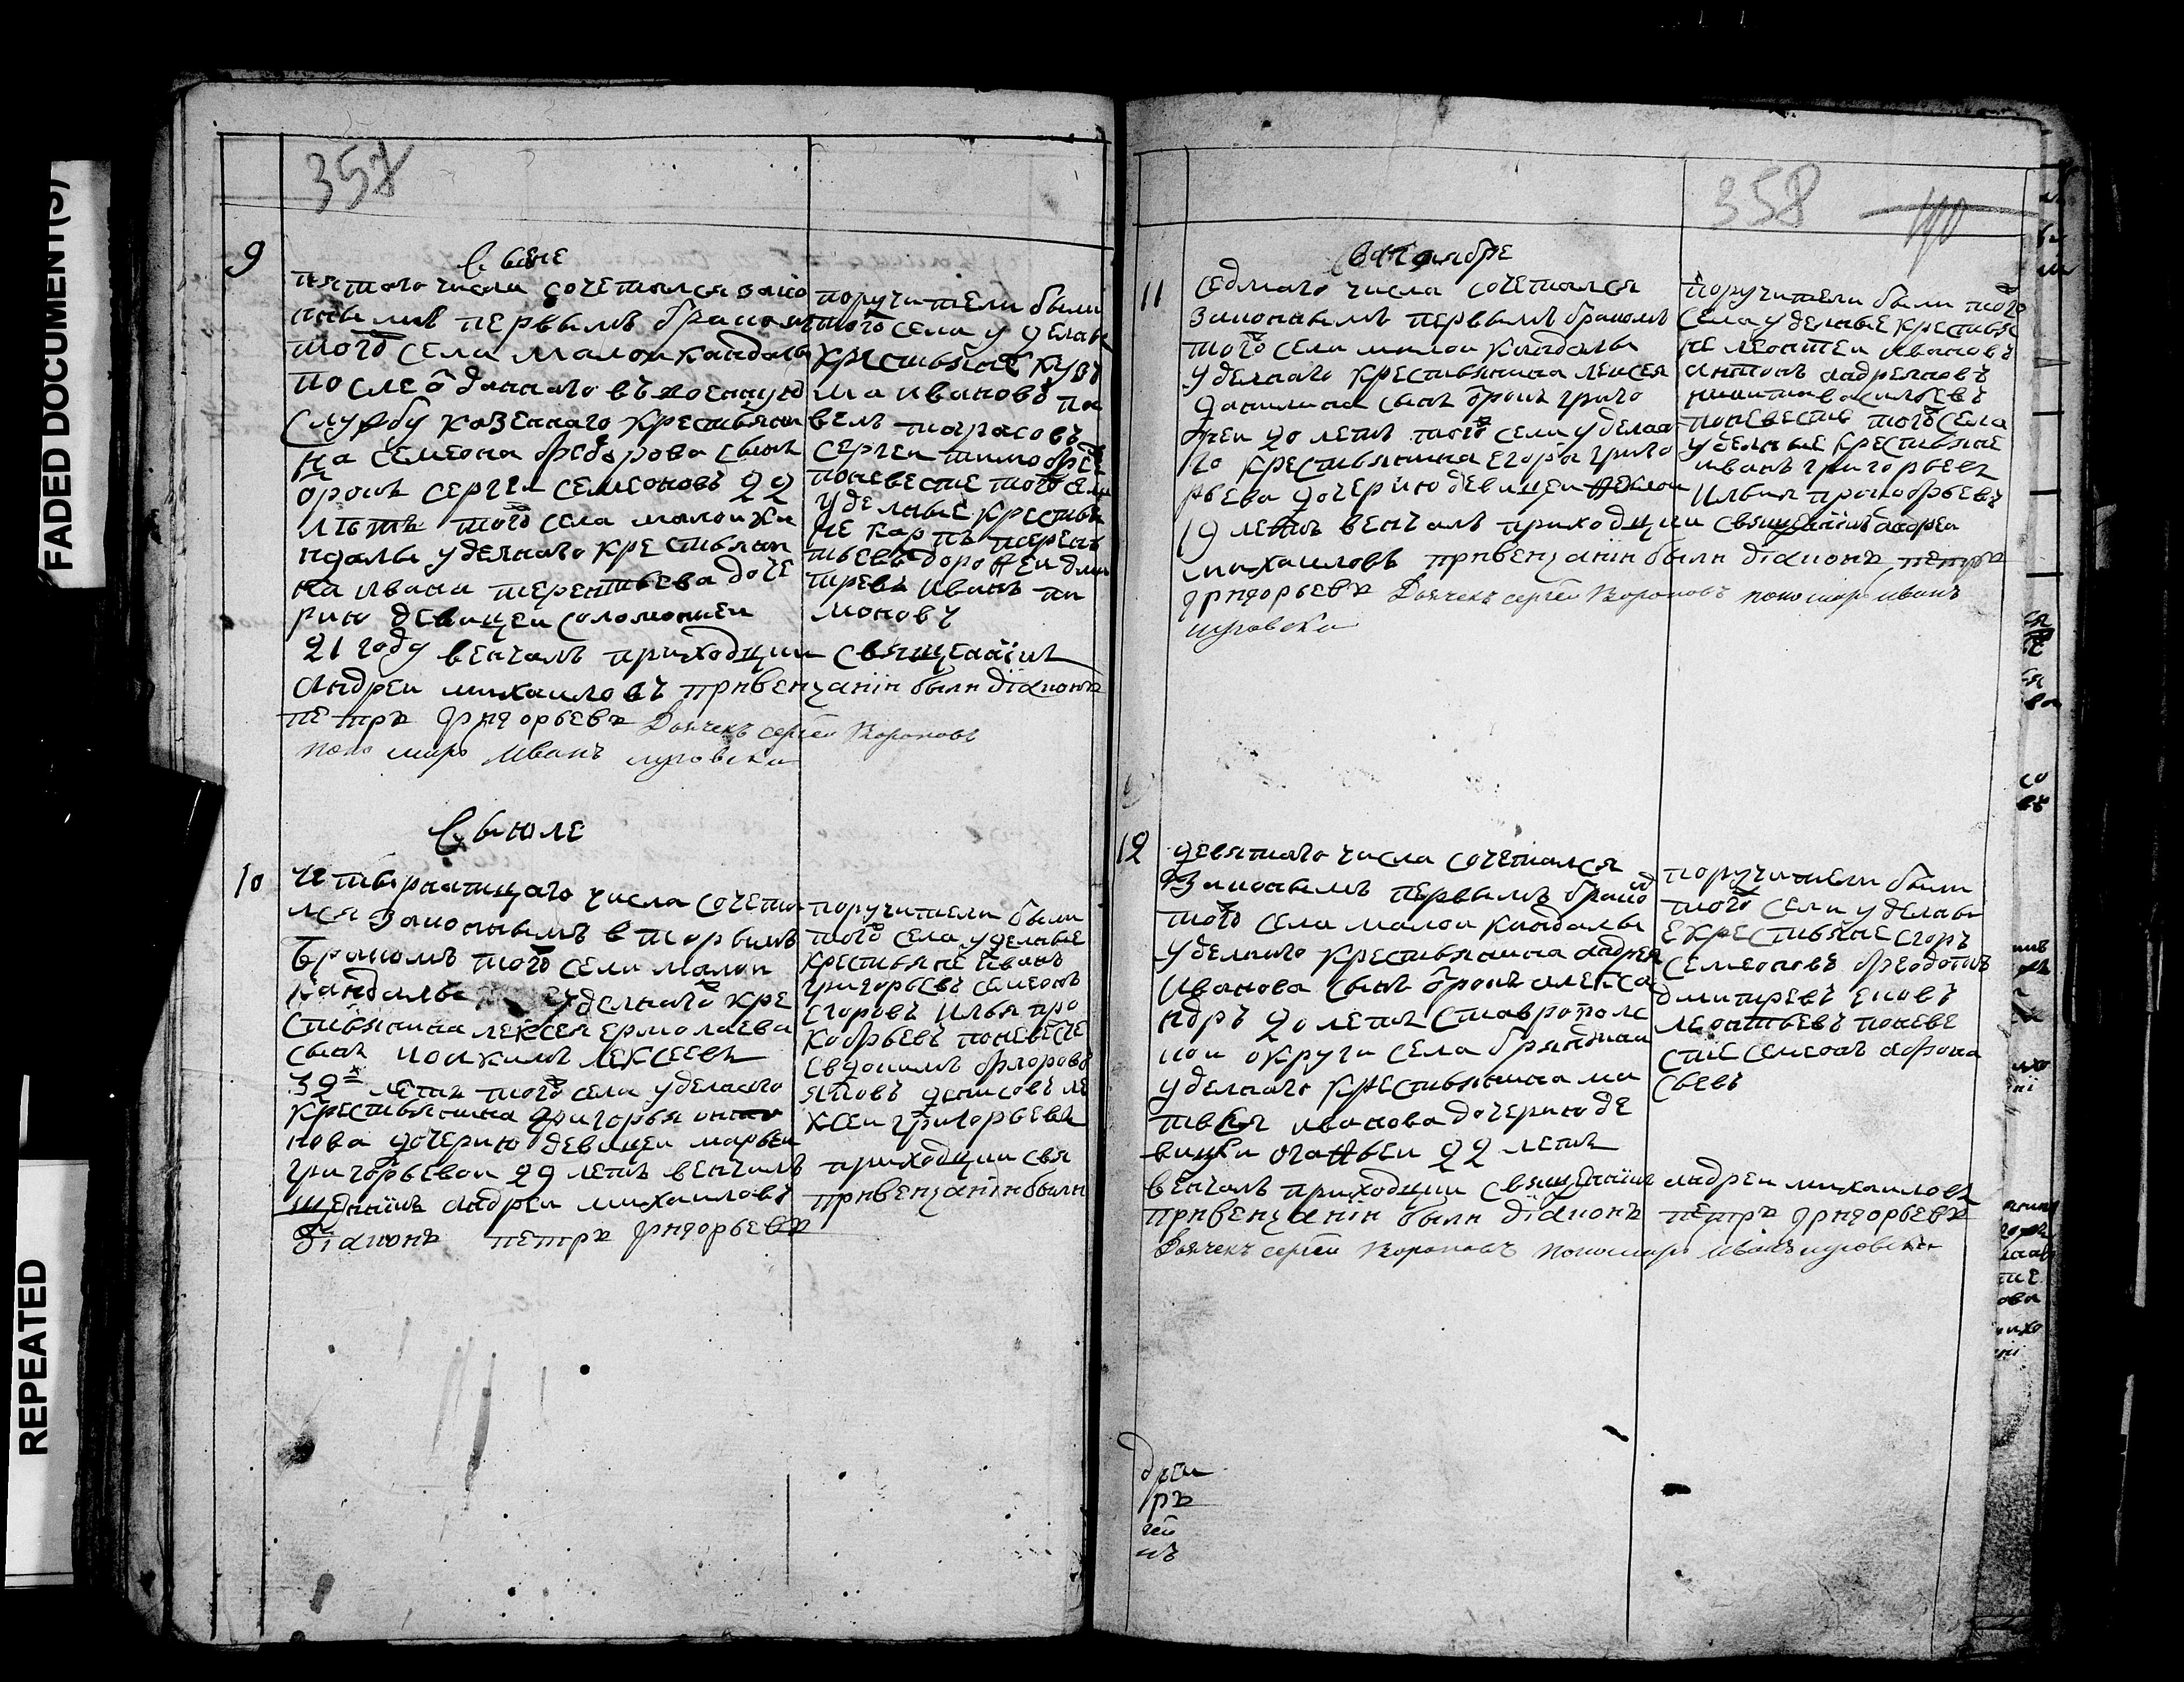 FADED DOCUMENT(S)
REPEATED
357
9
пятаго числа сочетался зако
ннымъ первымъ бракомъ
того села малои кандалы
после отданнаго въ военную
службу казеннаго крестьяни
на семеона федорова сынъ
отрокъ сергеи семеоновъ 22
летъ того села малои ка
ндалы уделнаго крестьяни
на ивана терентьева доче
рию девицеи соломониеи
21 году венчалъ приходции священникъ
андреи михаиловъ привенчании были диаконъ
петръ Дьячекъ сергеи Вороновъ
пономарь Иванъ
поручители были
того села уделны
крестьяне кузь
ма ивановъ па
велъ тарасовъ
сергеи тимофее
поневесте того села
уделные крестья
не карпъ терен
тьевъ дорофеи дми
тревъ иванъ па
моновъ
в июле
10
четвертнатцаго числа сочета
лся законнымъ вторымъ
бракомъ того села малои
кандалы уделнаго кре
стьянина лексея ермолаева
сынъ иоакимъ лексеевъ
32 летъ того села уделнаго
крестьянина григорья
нова дочерию девицеи марьеи
григорьевои 29 летъ венчалъ приходции свя
щенникъ андреи михаиловъ привенчании были
диаконъ петръ
поручители были
того села уделные
крестьяне иванъ
григорьевъ семеонъ
егоровъ илья про
кофьевъ поневесте
евдокимъ флоровъ
яковъ денисовъ ле
ксеи григорьевъ
358
110
в октоябре
11
седмаго числа сочетался
законнымъ первымъ бракомъ
того села малои кандалы
уделнаго крестьянина лексея
данилина сынъ отрокъ григо
реи 20 летъ того села уделна
го крестьянина егора григо
рьева дочерию девицеи феклои
19 летъ венчалъ приходции священникъ андреи
михаиловъ привенчании были диаконъ петръ
Дьячекъ сергеи Вороновъ пономарь иванъ
поручители были того
села уделные крестья
не леонтеи ивановъ
антонъ андреяновъ
никита васильевъ
поневесте того села
уделные крестьяне
иванъ григорьевъ
илья прокофьевъ
12
девятаго числа сочетался
законнымъ первымъ брако
того села малои кандалы
уделнаго крестьянина андрея
иванова сынъ отрокъ алекса
ндръ 20 летъ ставрополс
кои округи села бряндина
уделнаго крестьянина ма
твея иванова дочерию де
вицеи агафьеи 22 летъ
венчалъ приходции священникъ андреи михаиловъ
привенчании были диаконъ петръ
Дьячекъ сергеи Вороновъ пономарь Иванъ
поручители были
того села уделны
е крестьяне егоръ
семеоновъ федотъ
дмитревъ
леонтьевъ поневе
сте семеонъ афона
сьевъ
дреи
ръ
геи
нъ